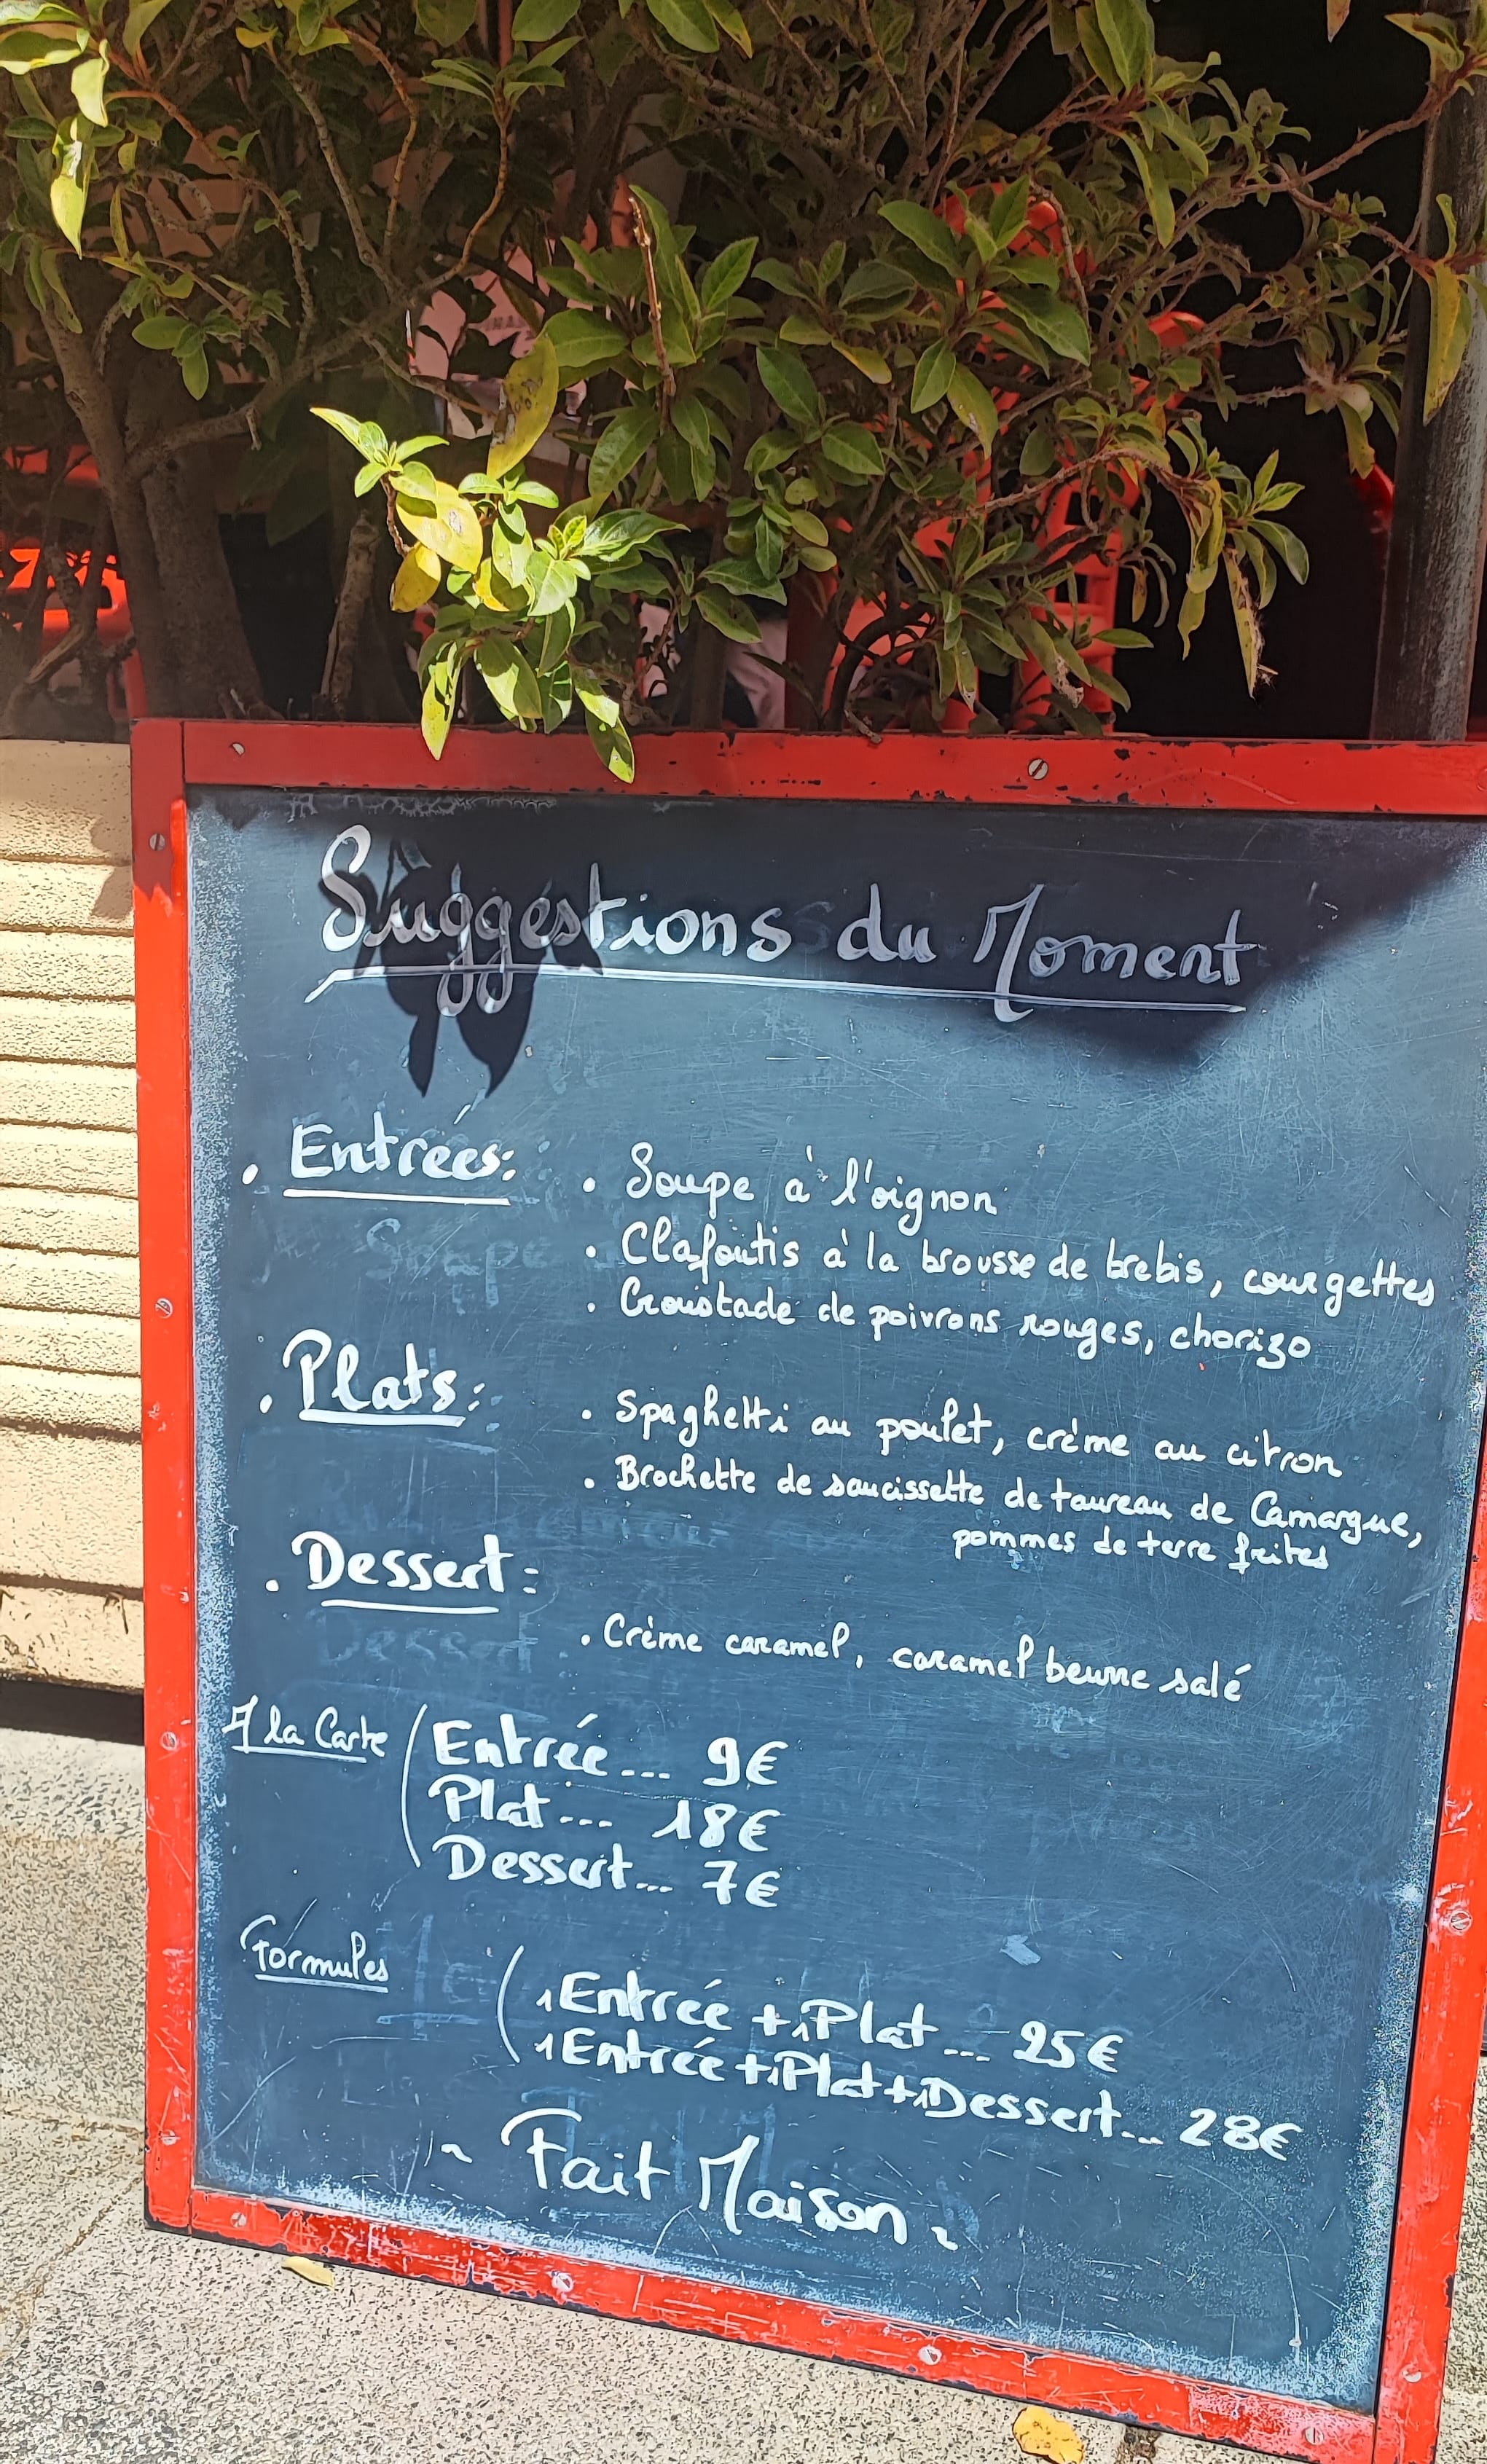 Suggestions du Moment
. Entrées:
. Soupe à l'oignon
. Clafoutis à la brousse de brebis, courgettes
. Croustade de poivrons rouges, chorizo
. Plats:
. Spaghetti au poulet, crème au citron
. Brochette de saucissette de taureau de Camargue,
pommes de terre frites
. Dessert:
. Crème caramel, caramel beurre salé
A la Carte
Entrée... 9€
Plat... 18€
Dessert... 7€
Formules
1 Entrée + 1 Plat... 25€
1 Entrée + 1 Plat + 1 Dessert... 28€
~ Fait Maison ~